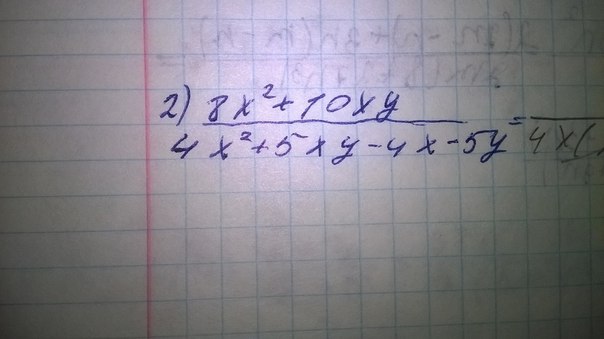 2) 8x²+10xy
4x²+5xy-4x-5y = 4x(